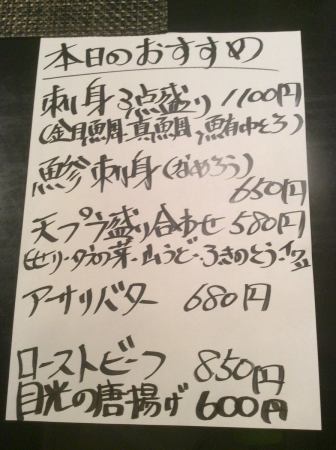 本日のおすすめ
刺身3点盛り 1100円
(金目鯛、真鯛、鮪中とろ)
鯵刺身(なめろう)
650円
天プラ盛り合わせ 580円
セリ・タラの菜・山うど・ふきのとう・
アーサリバター 680円
ローストビーフ 850円
目光の唐揚げ 600円